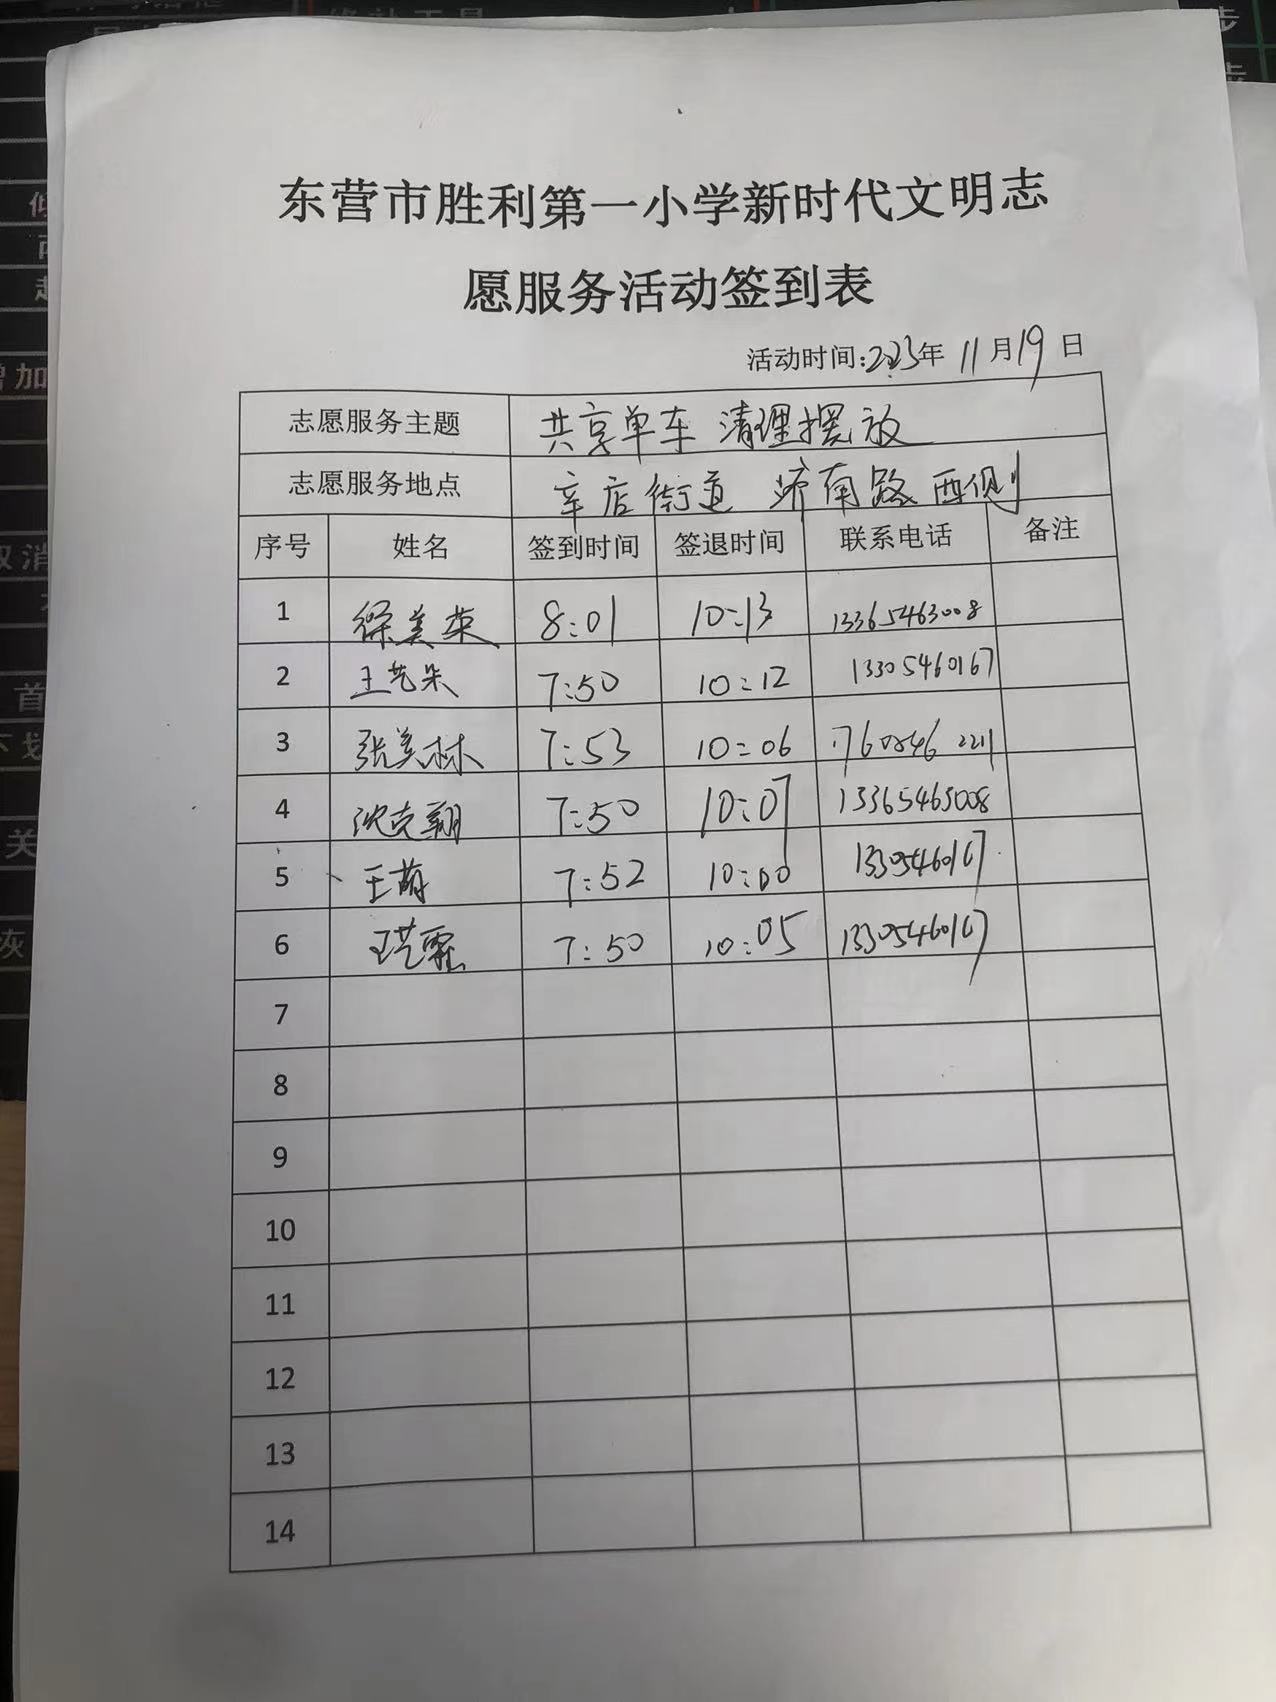 东营市胜利第一小学新时代文明志
愿服务活动签到表
活动时间:2023年 11月19日
志愿服务主题 共享单车 清理摆放
志愿服务地点 辛店街道 济南路西侧
序号 姓名 签到时间 签退时间 联系电话 备注
1 徐美荣 8:01 10:13 13365463008
2 王艺朵 7:50 10:12 13305460167
3 张美林 7:53 10:06 17605462211
4 沈克翮 7:50 10:07 13365463008
5 王萌 7:52 10:00 13305460167
6 王艺霏 7:50 10:05 13305460167
7
8
9
10
11
12
13
14